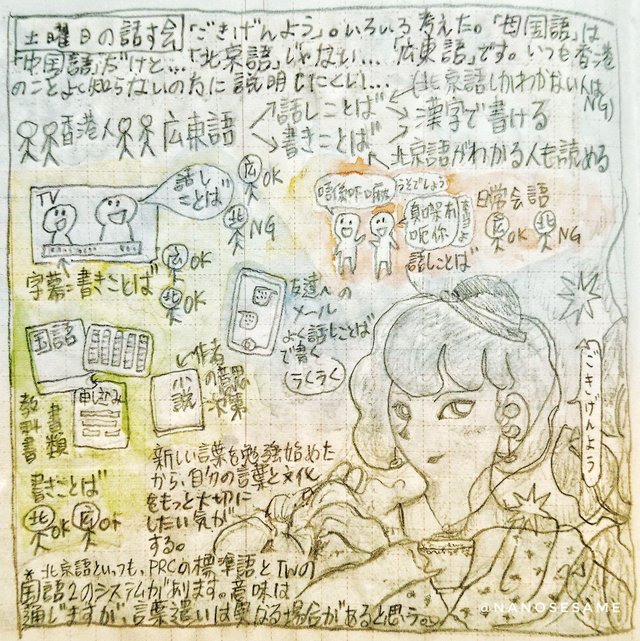 土曜日の話す会「ごきげんよう」。いろいろ考えた。「母国語」は
「中国語」だけど…「北京語」じゃない…「広東語」です。いつも香港
のことよく知らないの方に説明しにくい…
(北京語しかわかない人はNG)
香港人
広東語
話しことば
書きことば
漢字で書ける
北京語がわかる人も読める
TV
話し
ことば
広 OK
北 NG
字幕=書きことば
広 OK
北 OK
唔係吓嘛
うそでしょう
真㗎
呢你
日常会話
広 OK
北 NG
話しことば
友達への
メール
よく話しことば
で書く
らくらく
国語
教科書
申し込み
書類
小説
作者
の意思
次第
書きことば
北 OK
広 OK
新しい言葉を勉強始めた
から、自分の言葉と文化
をもっと大切に
したい気が
する。
ごきげんよう
*北京語といっても、PRCの標準語とTWの
国語2のシステムがあります。意味は
通じますが、言葉遣いは異なる場合があると思う。
@NANOSESAME